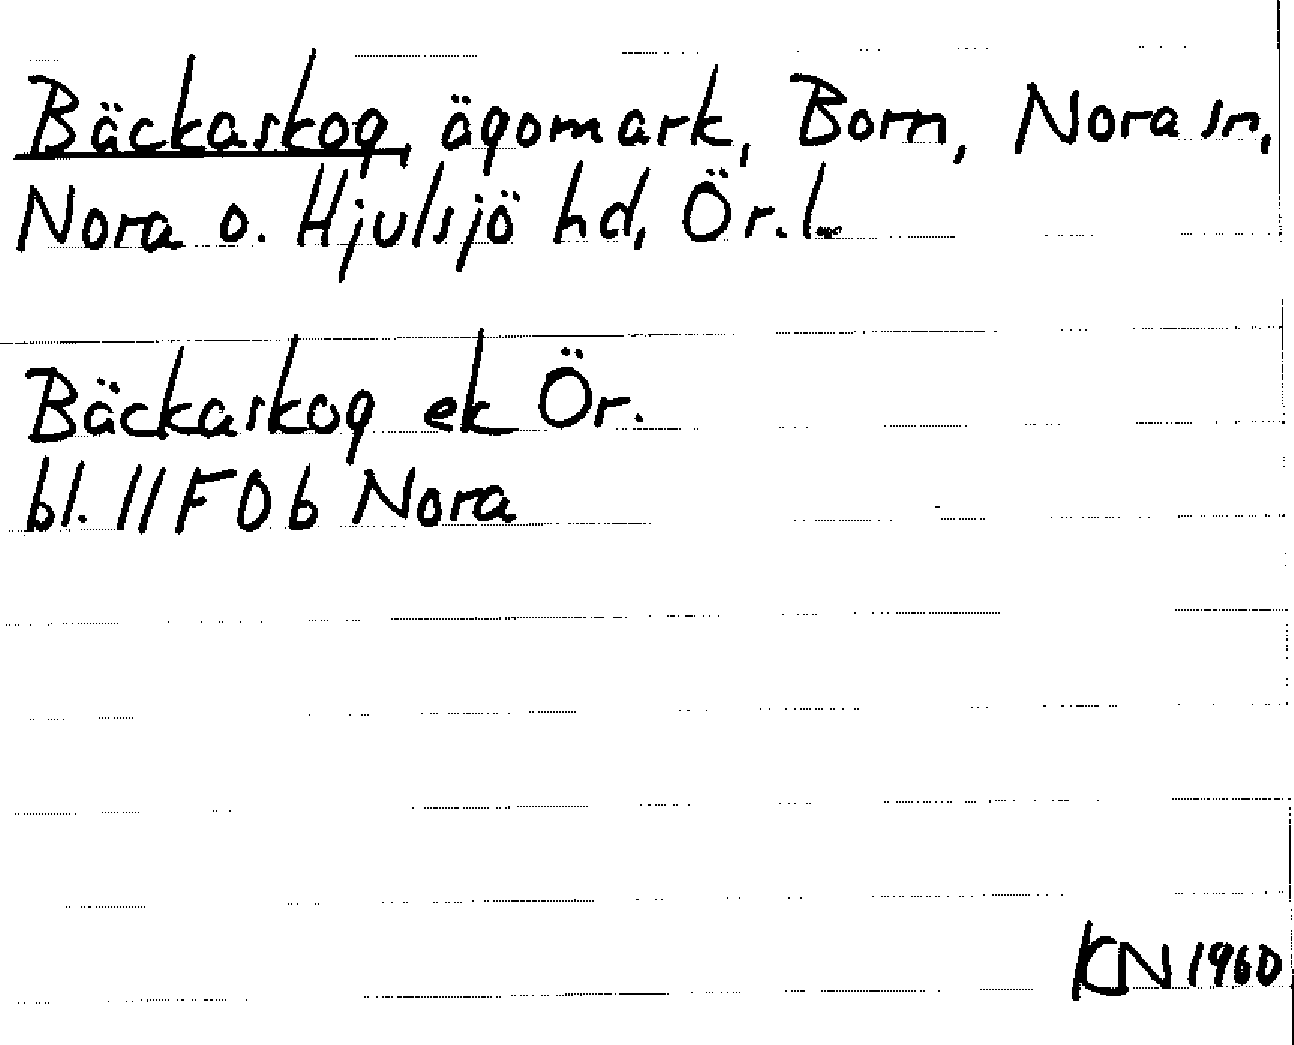 Bäckaskog, ägomark, Born, Nora sn,
Nora o. Hjulsjö hd, Ör. l.
Bäckaskog ek Ör.
bl. 11F 0b Nora
KN 1960